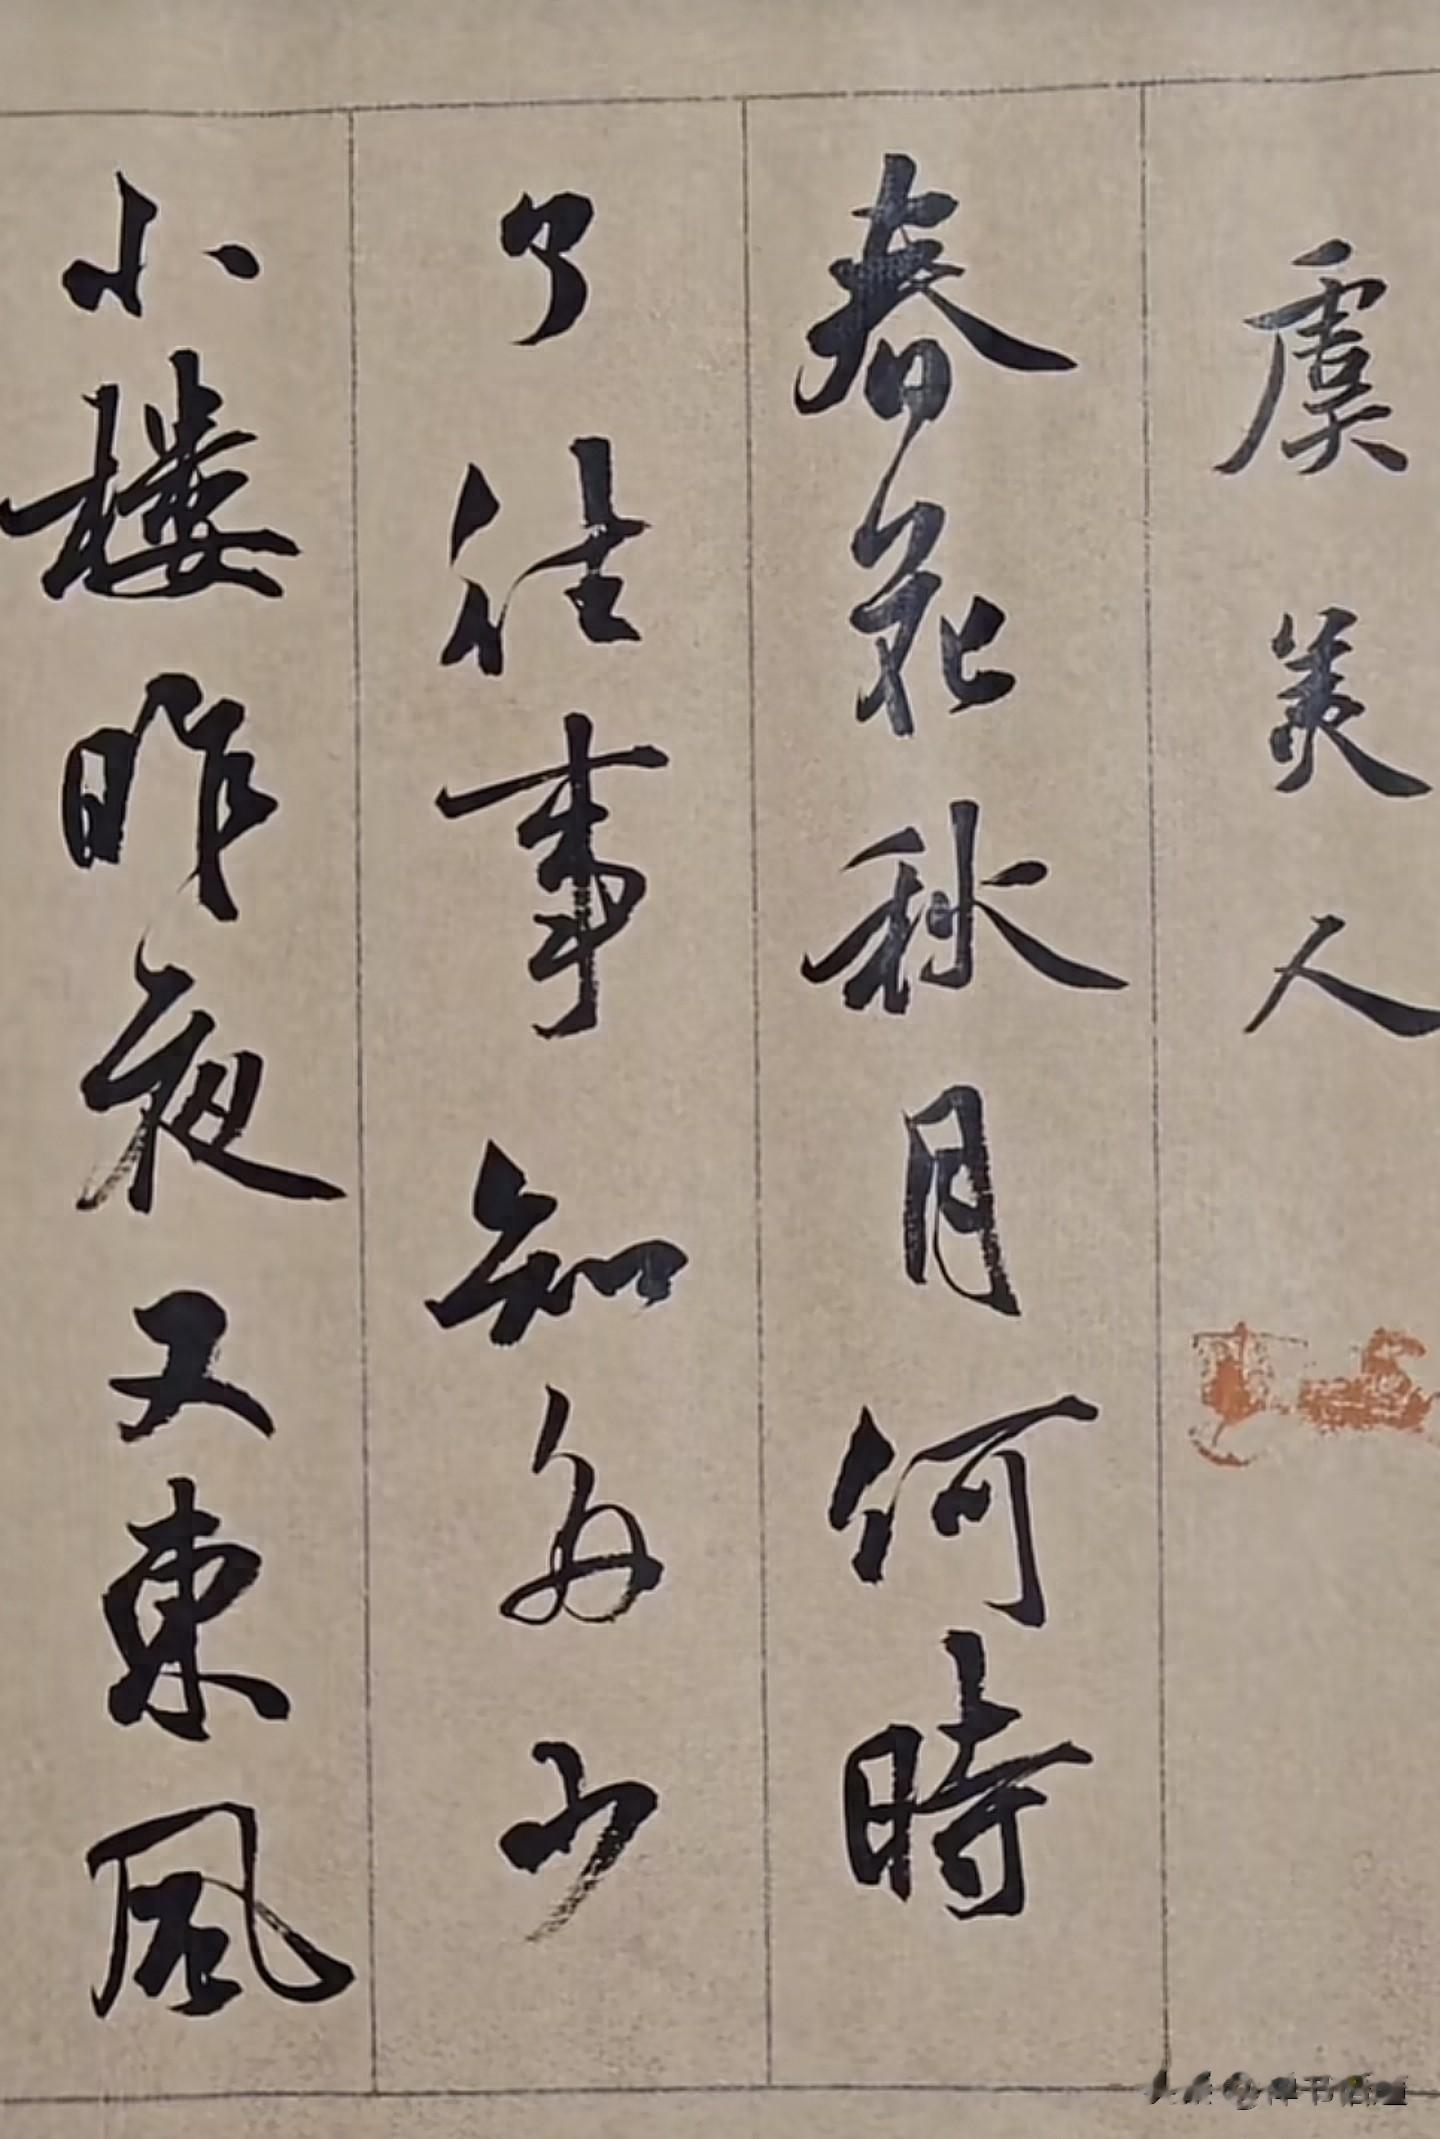 虞美人
春花秋月何時
了往事知多少
小樓昨夜又東風